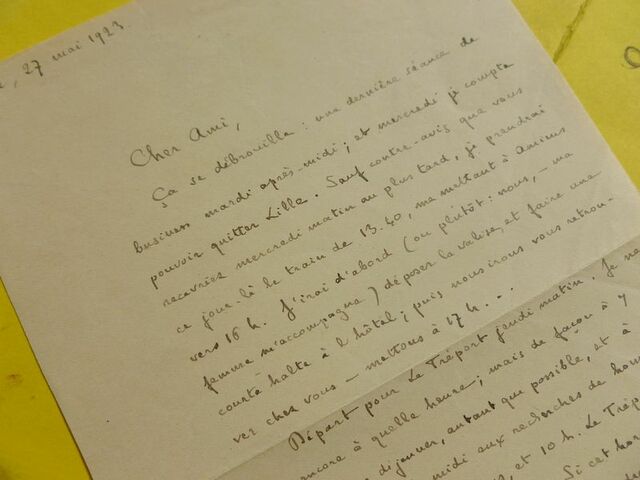 , 27 mai 1923
Cher Ami,
Ça se débrouille : une dernière séance de
business mardi après-midi ; et mercredi je compte
pouvoir quitter Lille. Sauf contre-avis que vous
recevriez mercredi matin au plus tard, je prendrai
ce jour-là le train de 13.40, me mettant à Amiens
vers 16 h. J'irai d'abord (ou plutôt : nous, - ma
femme m'accompagne) déposer la valise, et faire une
courte halte à l'hôtel ; puis nous irons vous retrou-
ver chez vous - mettons à 17 h...
Départ pour Le Tréport jeudi matin. Je ne
encore à quelle heure ; mais de façon à y
déjeuner, autant que possible, et à
midi aux recherches de hom
et 10 h. Le Trép
Si cet hor